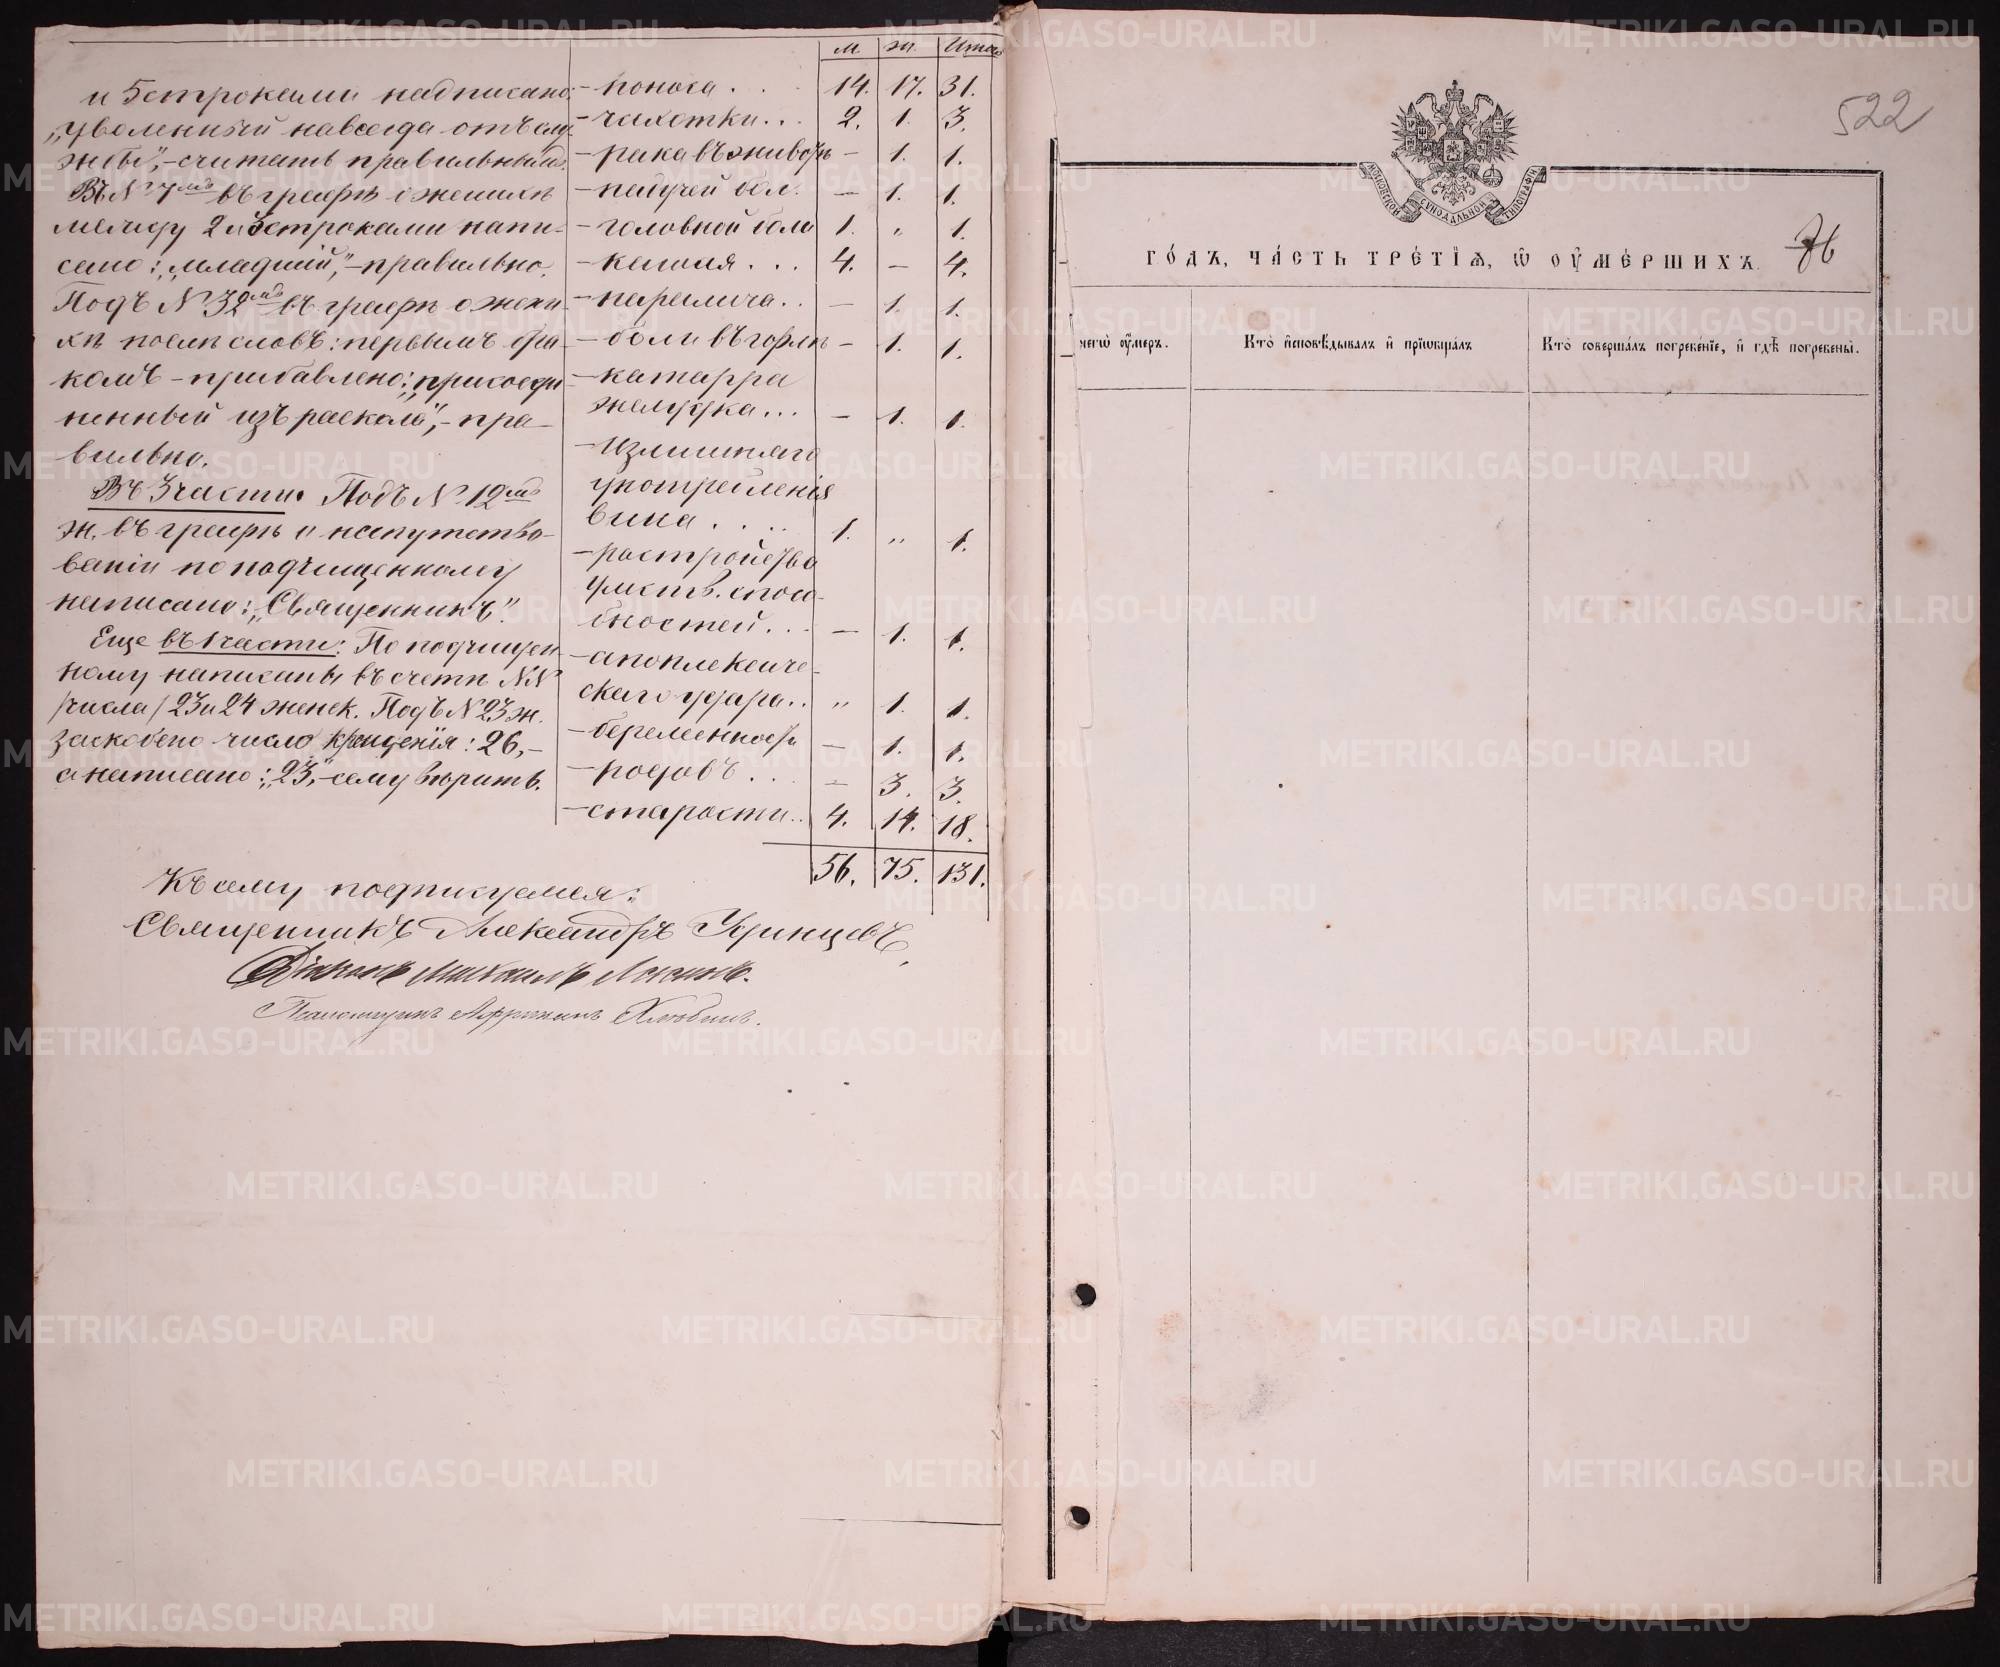 и 5 строками надписано:
„уволенный навсегда отъ слу-
жбы",—считать правильнымъ.
Въ № 7мъ въ графѣ о женихѣ
между 2 и 3 строками напи-
сано: „младшій",—правильно.
Подъ № 32мъ въ графѣ о жени-
хѣ послѣ словъ: первымъ бра-
комъ — прибавлено: „присоеди-
ненный изъ раскола",— пра-
вильно.
Въ 3 части. Подъ № 12мъ
ж. въ графѣ о напутство-
ваніи по подчищенному
написано: „Священникъ".
Еще въ 1 части: По подчищен-
ному написаны въ счетѣ №№
/числа/ 23 и 24 женск. Подъ № 23 ж.
заскоблено число крещенія: 26,—
а написано: „23",—сему вѣрить.
м ж. Итого
— поноса . . . 14. 17. 31.
— чахотки . . . 2. 1. 3.
— рака въ животѣ — 1. 1.
— падучей бол. — 1. 1.
— головной боли 1. „ 1.
— кашля . . . 4. — 4.
— паралича . . — 1. 1.
— боли въ горлѣ — 1. 1.
— катарра
желудка . . . — 1. 1.
— излишняго
употребленія
вина . . . . 1. „ 1.
— растройства
умств. спосо-
бностей . . . — 1. 1.
— апоплексиче-
скаго удара . . „ 1. 1.
— беременность — 1. 1.
— родовъ . . . — 3. 3.
— старости . . 4. 14. 18.
56. 75. 131.
Къ сему подписуемся:
Священникъ Александръ Удинцевъ.
Діаконъ Михаилъ
Псаломщикъ Африканъ Хлюбинъ.
522
МОСКОВСКОЙ СѴНОДАЛЬНОЙ ТИПОГРАФІИ
76
ГО́ДЪ, ЧА́СТЬ ТРЕ́ТІѦ, Ѡ҆ ОУ҆МЕ́РШИХЪ.
чегѡ̀ ᲂу҆́меръ.
Кто̀ и҆сповѣ́дывалъ и҆ прїѡбща́лъ
Кто̀ соверша́лъ погребе́нїе, и҆ гдѣ̀ погребены̀.
METRIKI.GASO-URAL.RU